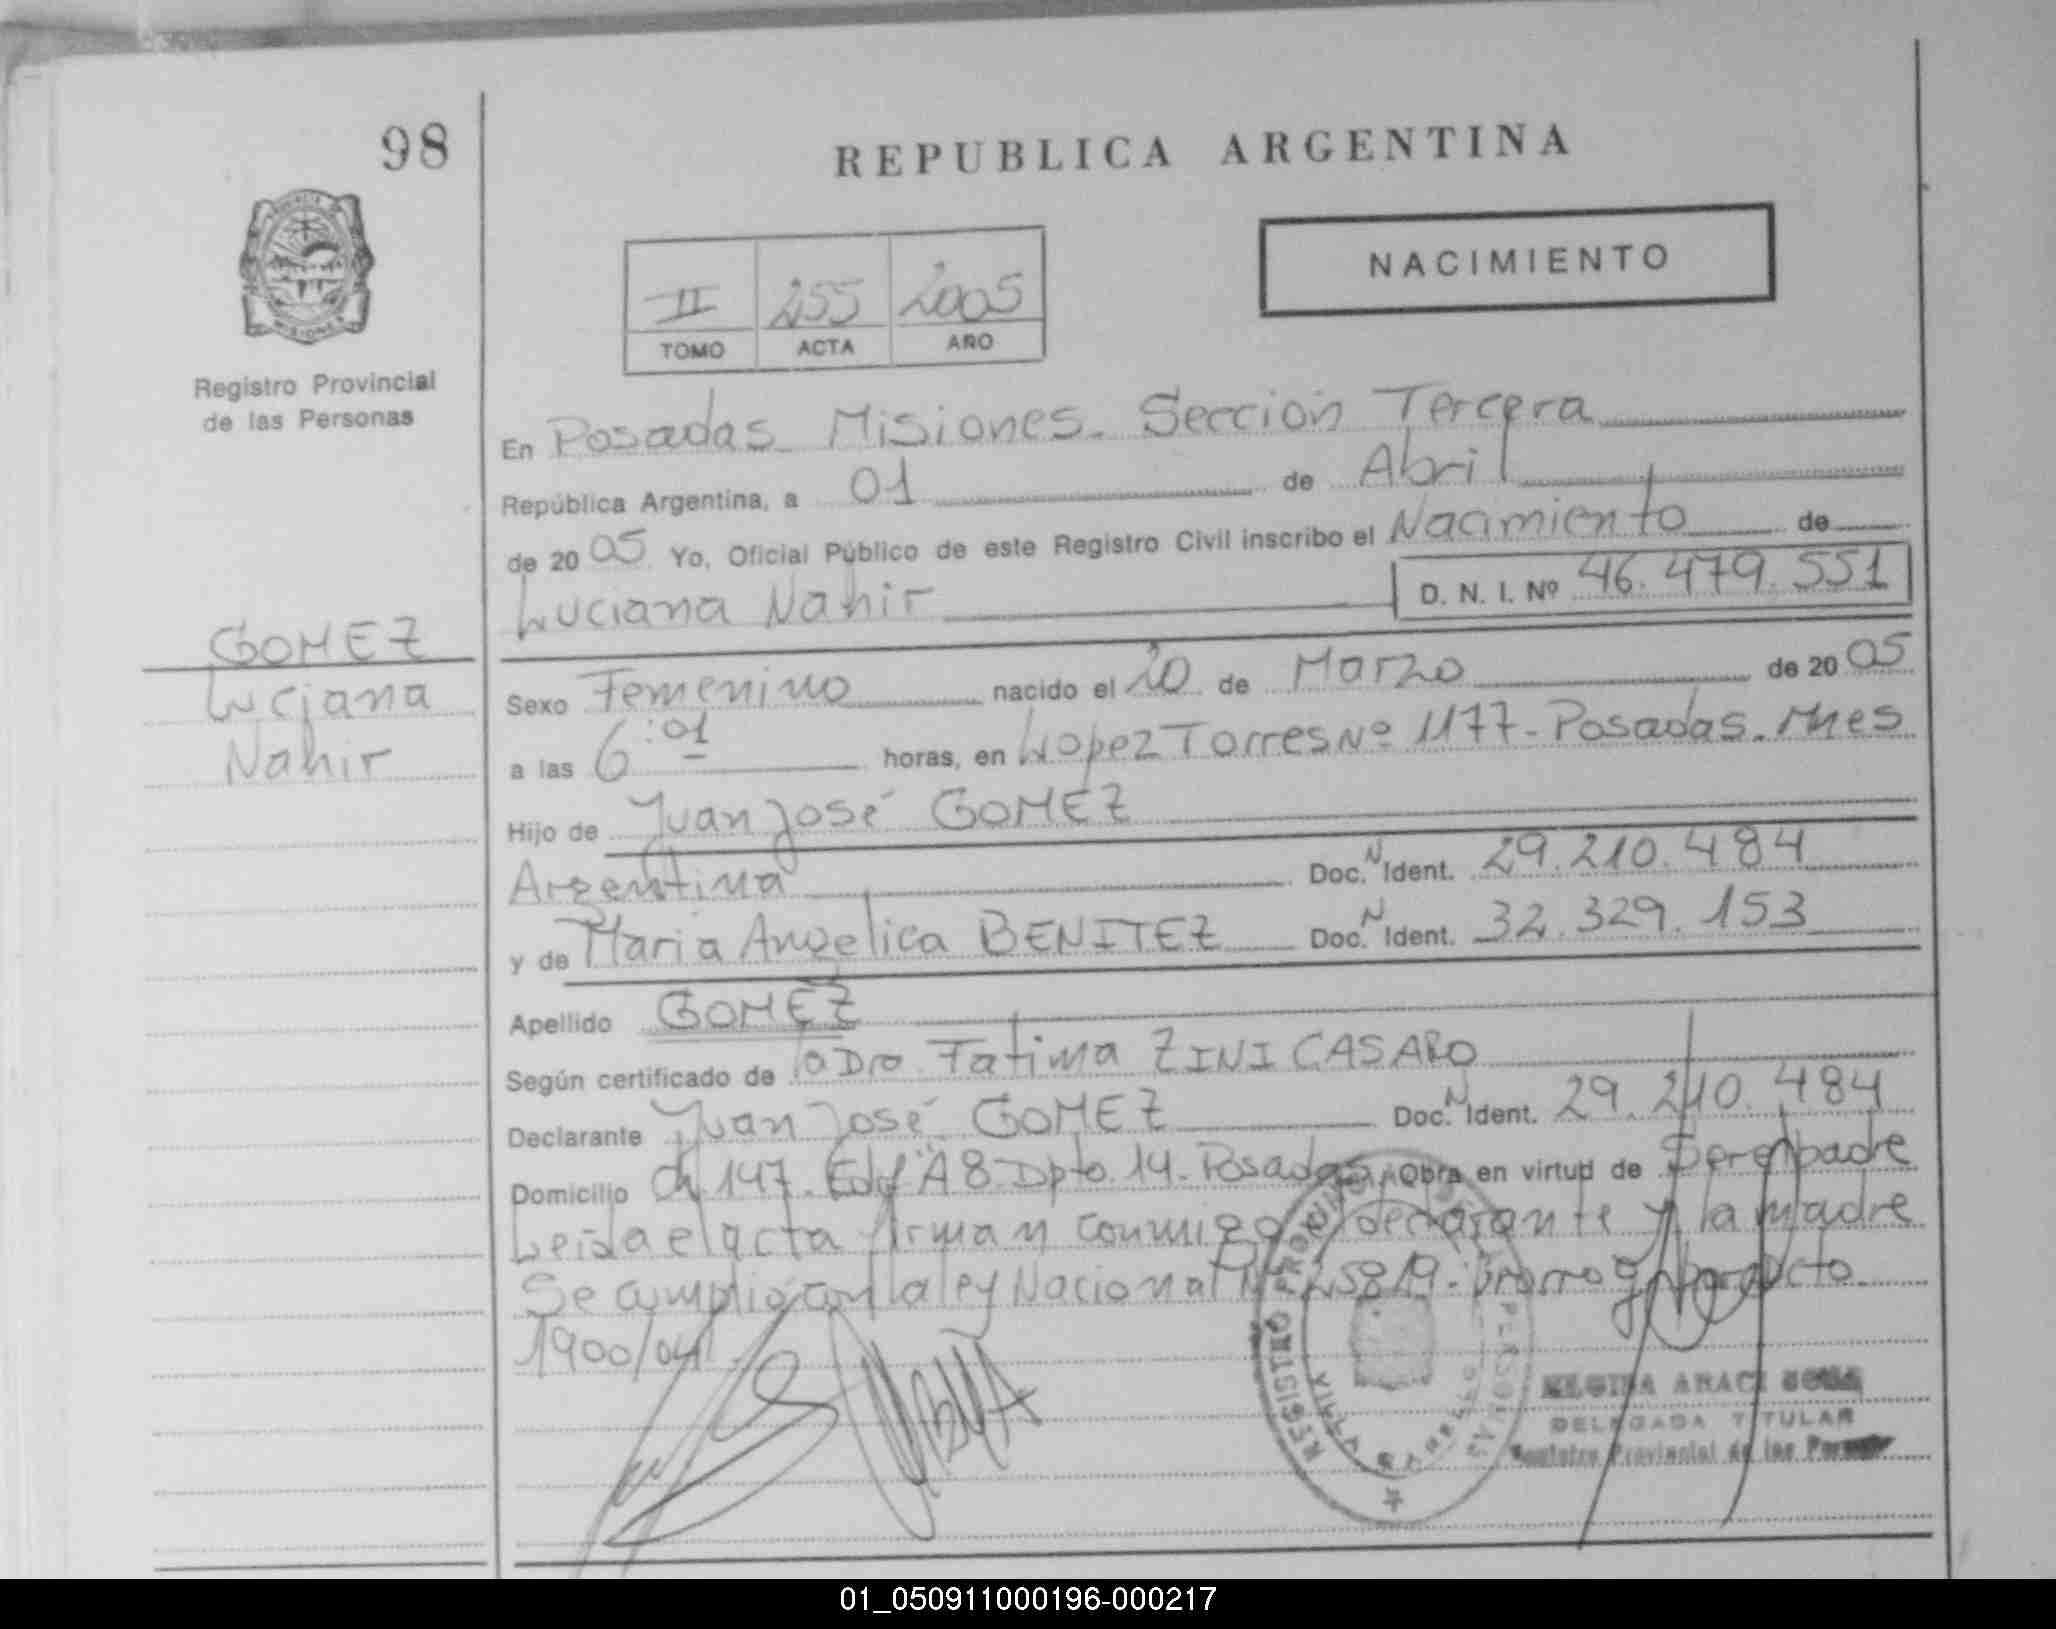 98
REPUBLICA ARGENTINA
NACIMIENTO
II 255 2005
TOMO ACTA AÑO
MISIONES
Registro Provincial
de las Personas
En Posadas Misiones. Sección Tercera
República Argentina, a 01 de Abril
de 2005 Yo, Oficial Público de este Registro Civil inscribo el Nacimiento de
Luciana Nahir D. N. I. Nº 46.479.551
GOMEZ
Luciana
Nahir
Sexo Femenino nacido el 20 de Marzo de 2005
a las 6:01 horas, en Lopez Torres Nº 1177-Posadas. Mnes
Hijo de Juan José GOMEZ
Argentina Doc. N Ident. 29.210.484
y de Maria Angelica BENITEZ Doc. N Ident. 32.329.153
Apellido GOMEZ
Según certificado de la Dra Fatima ZINI CASARO
Declarante Juan José GOMEZ Doc. N Ident. 29.210.484
Domicilio Ch 147. Edif "A8 Dpto. 14. Posadas. Obra en virtud de Ser el padre
Leida el acta firman conmigo declarante y la madre
Se cumplió con la ley Nacional Nº 25819. Prorroga por dcto
1900/04.
REGISTRO PROVINCIAL DE LAS PERSONAS
ARACI
DELEGADA TITULAR
Registro Provincial de las Personas
01_050911000196-000217